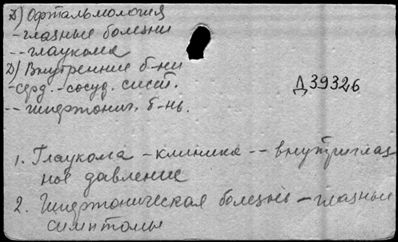 Д) Офтальмология
- глазные болезни
-- глаукома
Д) Внутренние б-ни
- серд.-сосуд. сист.
-- гипертонич. б-нь.
Д39326
1. Глаукома - клиника -- внутриглаз
ное давление
2. Гипертоническая болезнь - глазные
симптомы